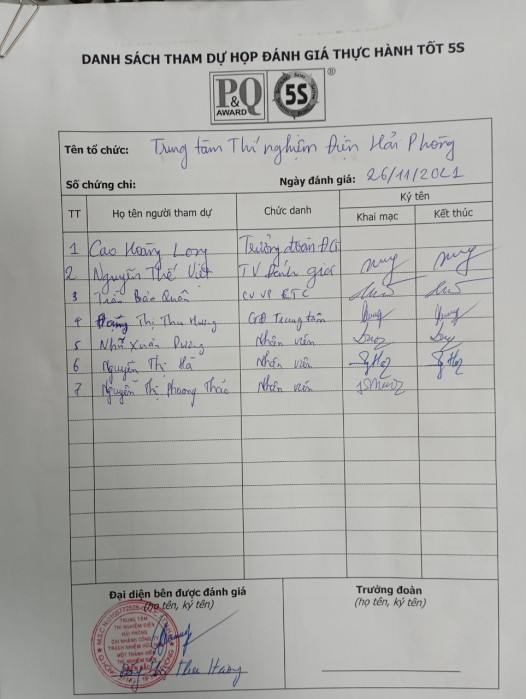 DANH SÁCH THAM DỰ HỌP ĐÁNH GIÁ THỰC HÀNH TỐT 5S
P&Q AWARD 5S ®
Tên tổ chức: Trung tâm Thí nghiệm Điện Hải Phòng
Số chứng chỉ: Ngày đánh giá: 26/11/2021
TT Họ tên người tham dự Chức danh Ký tên
Khai mạc Kết thúc
1 Cao Hoàng Long Trưởng đoàn ĐG
2 Nguyễn Thế Việt TV Đánh giá
3 Trần Bảo Quân CV VP ETC
4 Đặng Thị Thu Hương GĐ Trung tâm
5 Nhữ Xuân Dương Nhân viên
6 Nguyễn Thị Hà Nhân viên
7 Nguyễn Thị Phương Thảo Nhân viên
Đại diện bên được đánh giá Trưởng đoàn
(họ tên, ký tên) (họ tên, ký tên)
TRUNG TÂM
THÍ NGHIỆM ĐIỆN
HẢI PHÒNG
CHI NHÁNH CÔNG TY
TRÁCH NHIỆM HỮU HẠN
MỘT THÀNH VIÊN
THÍ NGHIỆM ĐIỆN
Thu Hương